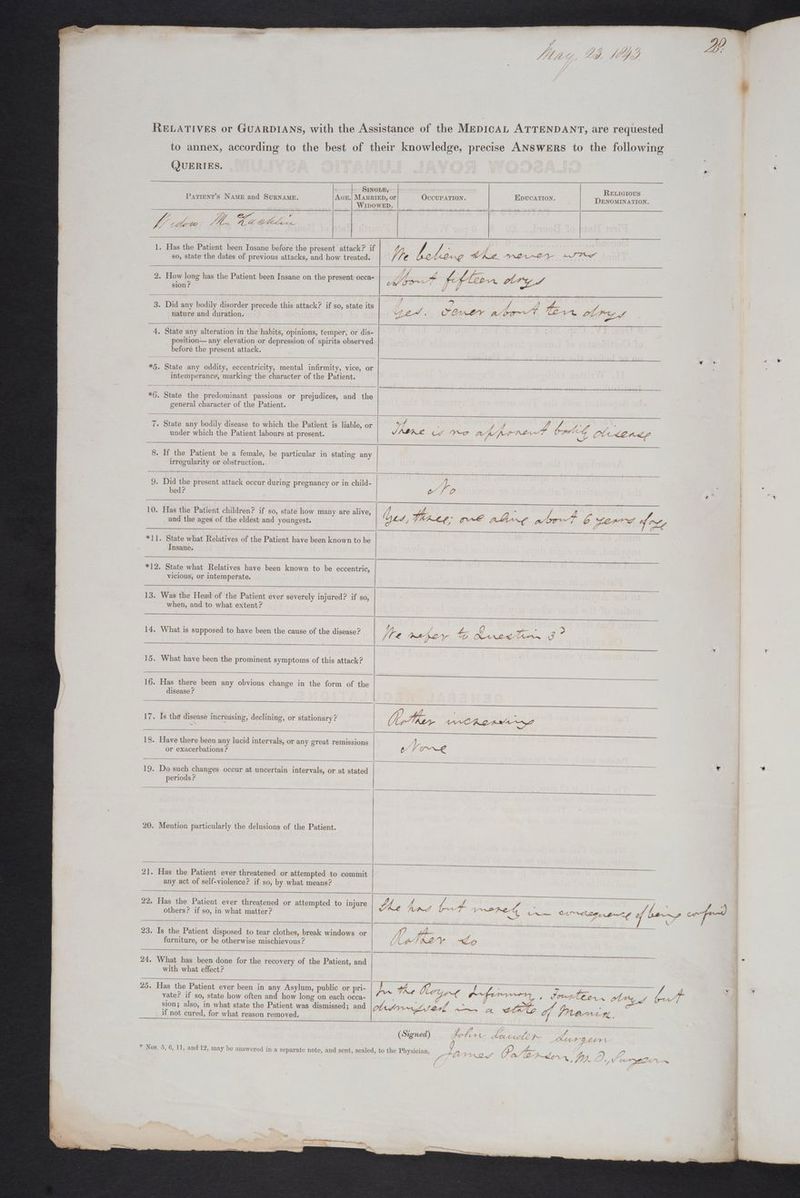 May, 23. 1843
28.
RELATIVES or GUARDIANS, with the Assistance of the MEDICAL ATTENDANT, are requested
to annex, according to the best of their knowledge, precise ANSWERS to the following
QUERIES.
PATIENT'S NAME and SURNAME. AGE. SINGLE, MARRIED, or WIDOWED. OCCUPATION. EDUCATION. RELIGIOUS DENOMINATION.
Widow Mc Lachlin
1. Has the Patient been Insane before the present attack? if
so, state the dates of previous attacks, and how treated.
We believe she never was
2. How long has the Patient been Insane on the present occa-
sion?
About fifteen days
3. Did any bodily disorder precede this attack? if so, state its
nature and duration.
Yes. Fever about ten days
4. State any alteration in the habits, opinions, temper, or dis-
position—any elevation or depression of spirits observed
before the present attack.
*5. State any oddity, eccentricity, mental infirmity, vice, or
intemperance, marking the character of the Patient.
*6. State the predominant passions or prejudices, and the
general character of the Patient.
7. State any bodily disease to which the Patient is liable, or
under which the Patient labours at present.
There is no apparent bodily disease
8. If the Patient be a female, be particular in stating any
irregularity or obstruction.
9. Did the present attack occur during pregnancy or in child-
bed?
No
10. Has the Patient children? if so, state how many are alive,
and the ages of the eldest and youngest.
Yes, three; one alive about 6 years of age
*11. State what Relatives of the Patient have been known to be
Insane.
*12. State what Relatives have been known to be eccentric,
vicious, or intemperate.
13. Was the Head of the Patient ever severely injured? if so,
when, and to what extent?
14. What is supposed to have been the cause of the disease?
We refer to Question 3d
15. What have been the prominent symptoms of this attack?
16. Has there been any obvious change in the form of the
disease?
17. Is the disease increasing, declining, or stationary?
Rather increasing
18. Have there been any lucid intervals, or any great remissions
or exacerbations?
None
19. Do such changes occur at uncertain intervals, or at stated
periods?
20. Mention particularly the delusions of the Patient.
21. Has the Patient ever threatened or attempted to commit
any act of self-violence? if so, by what means?
22. Has the Patient ever threatened or attempted to injure
others? if so, in what matter?
She has but merely in consequence of being confined
23. Is the Patient disposed to tear clothes, break windows or
furniture, or be otherwise mischievous?
Rather so
24. What has been done for the recovery of the Patient, and
with what effect?
25. Has the Patient ever been in any Asylum, public or pri-
vate? if so, state how often and how long on each occa-
sion; also, in what state the Patient was dismissed; and
if not cured, for what reason removed.
In the Royal Infirmary. Fourteen days but
dismissed in a state of Mania.
(Signed) John Lauder Surgeon
* Nos. 5, 6, 11, and 12, may be answered in a separate note, and sent, sealed, to the Physician.
James Paterson, M.D., Surgeon